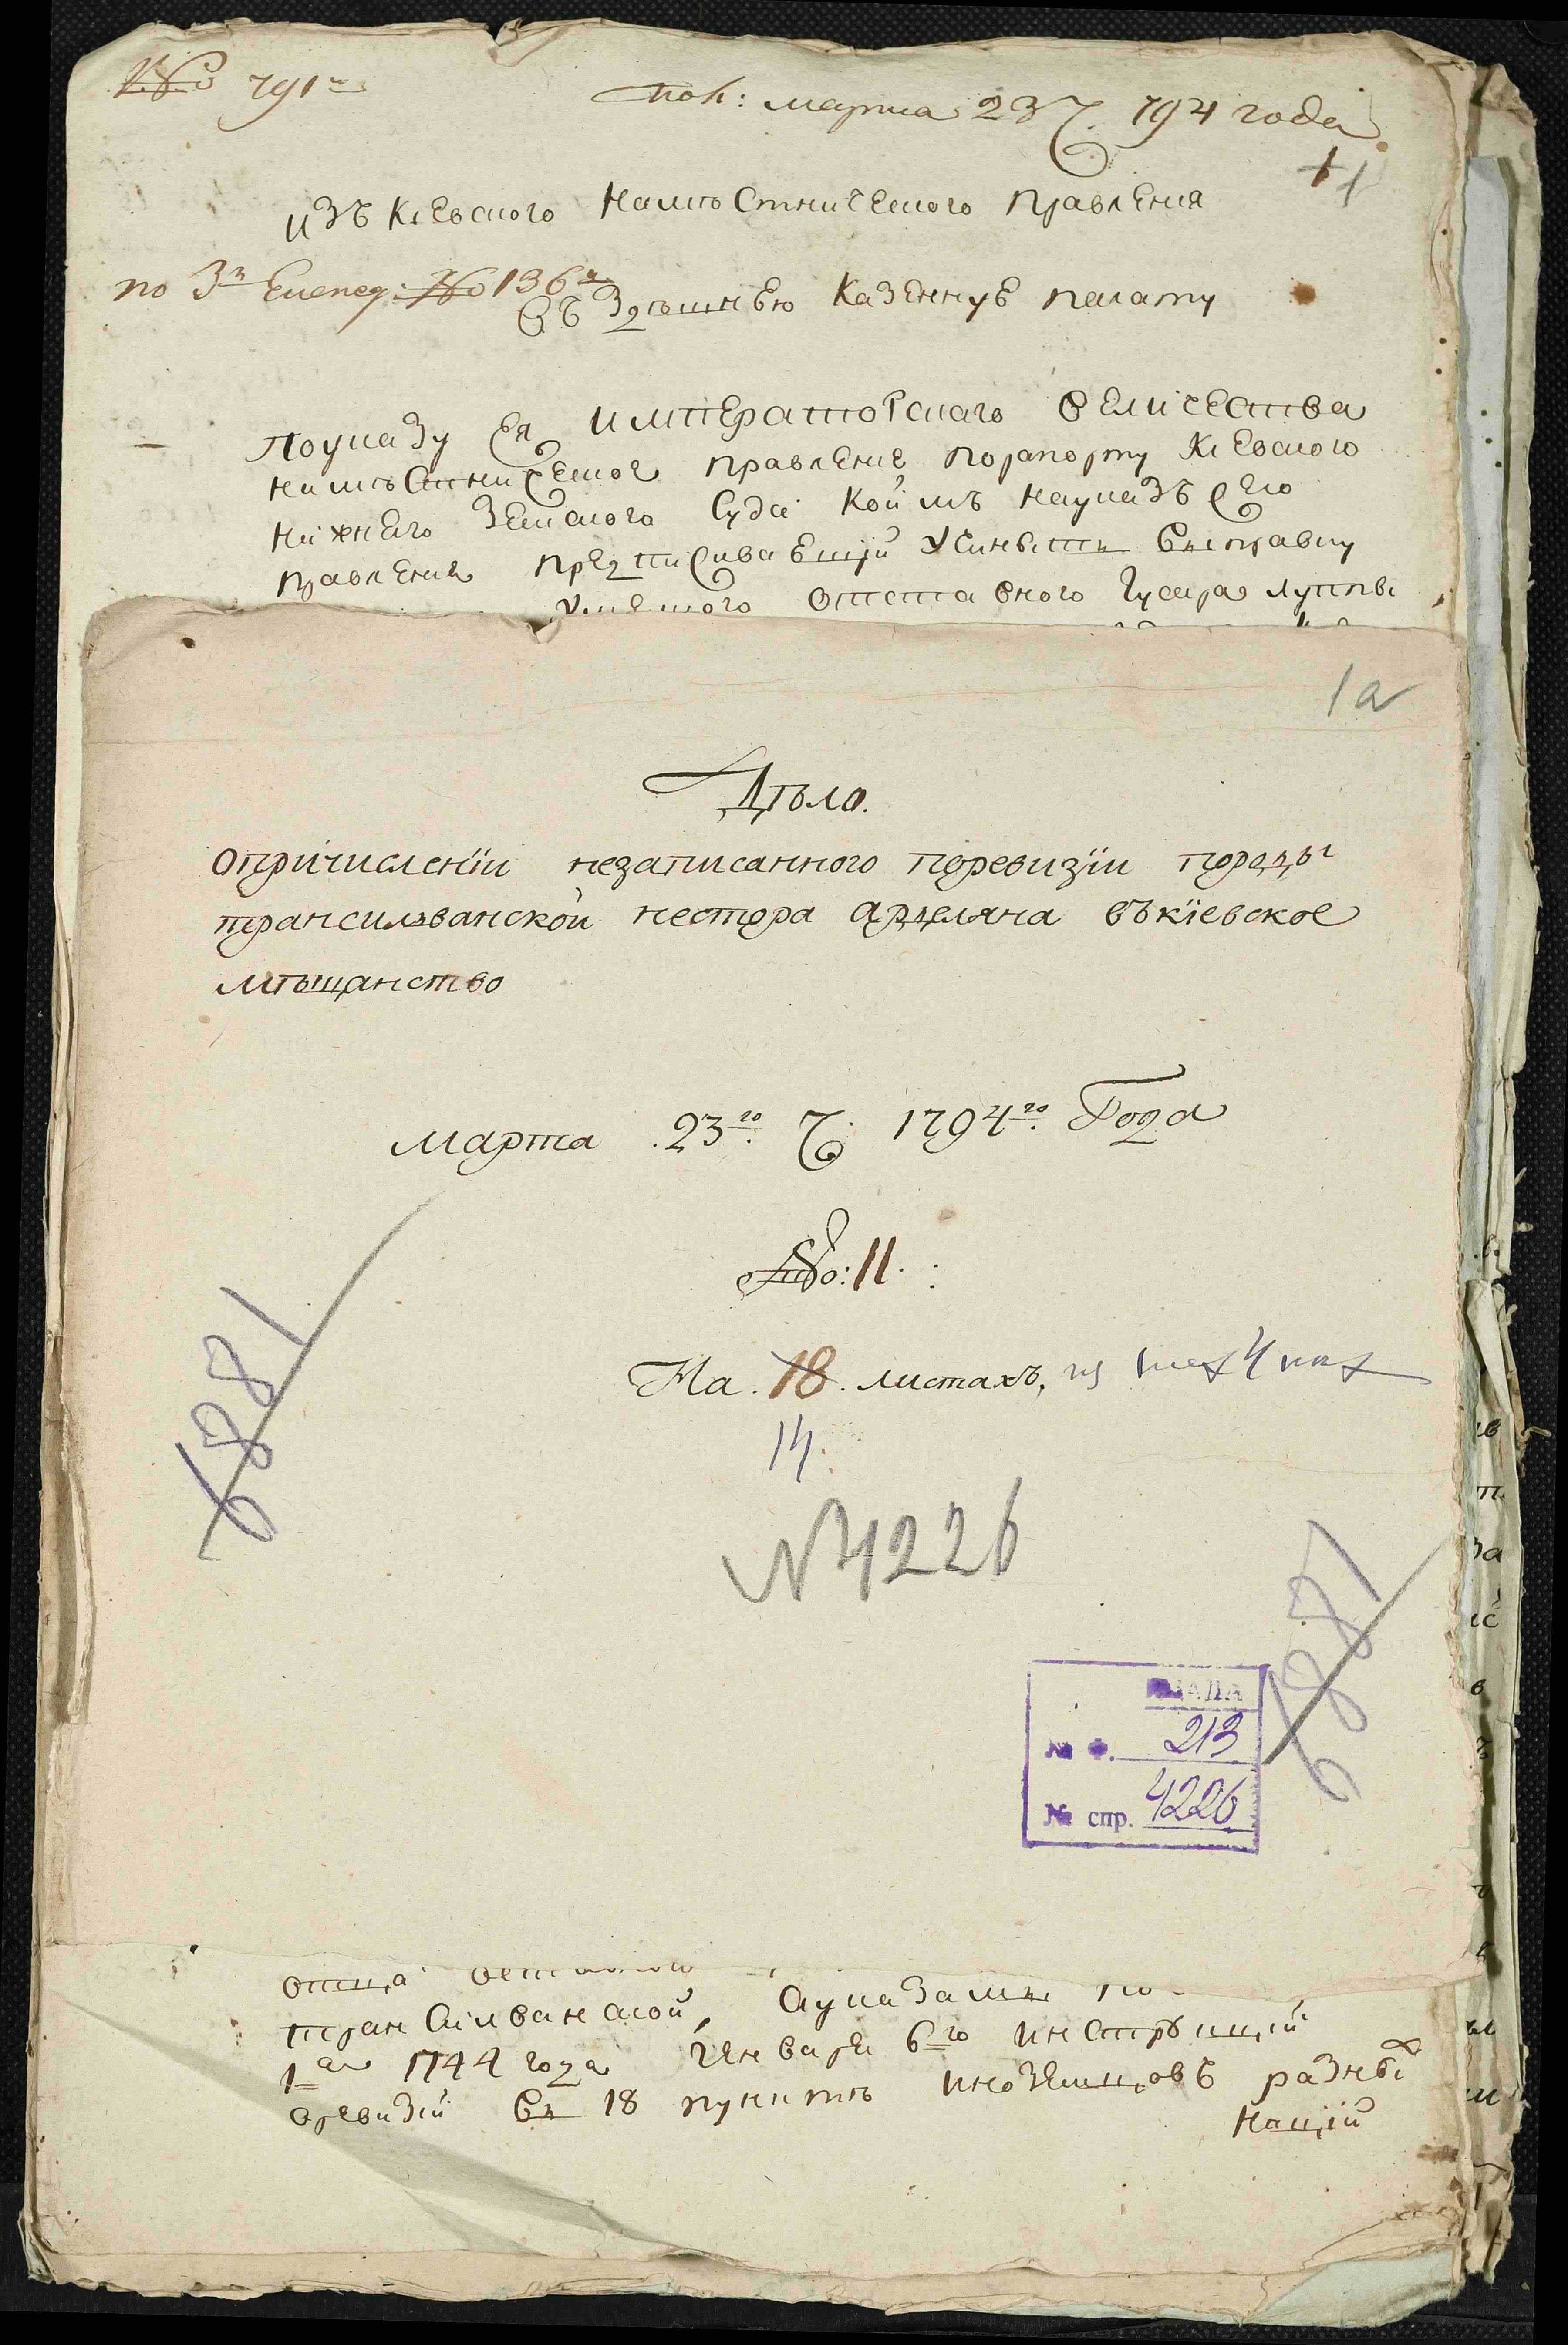 № 791
пол: марта 23 ч. 794 года
1 1
изъ Киевского намѣстнического правления
по 3й Експед: № 136
въ здѣшнею казенную палату
По указу ея императорскаго величества
намѣстническое правление по рапорту Киевского
нижнего земского суда коимъ на указъ сего
правления предписывающий учинить выправку
отставного гусара Луппы
1а
Дѣло.
опричисленїи незаписанного поревизїи породы
трансилванской нестора арделяна въкїевское
мѣщанство
марта 23го ч. 1794го Года
№: 11.
На 18. листахъ, из них
14.
6881
N 4226
6881
ЦДІА
№ Ф. 213
№ спр. 4226
отца
трансилванской, а указами
1е 1744 года генваря 6го инструкций
оревизий въ 18 пунктѣ иноземцовъ разных
наций